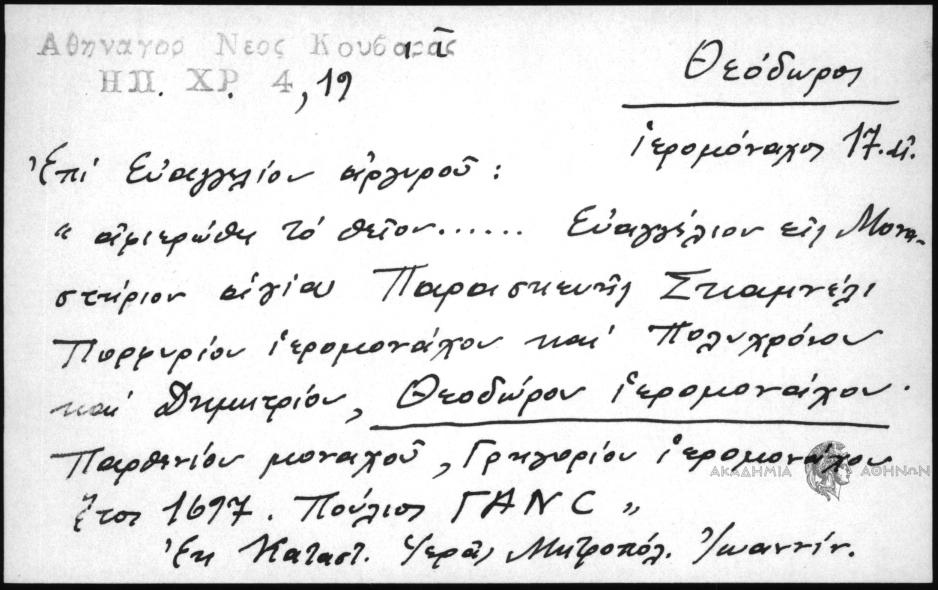 Αθηναγορ Νεος Κουβαρᾶς
ΗΠ. ΧΡ. 4, 19
Θεόδωρος
ἱερομόναχος 17. αἰ.
Ἐπί Εὐαγγελίου ἀργυροῦ :
" ἀφιερώθη τό θεῖον...... Εὐαγγέλιον εἰς Μονα-
στήριον ἁγίας Παρασκευῆς Σκαμνέλι
Πορφυρίου ἱερομονάχου καί Πολυχρόνου
καί Δημητρίου, Θεοδώρου ἱερομονάχου.
Παρθενίου μοναχοῦ, Γρηγορίου ἱερομονάχου
ἔτος 1697. Πούλιος ΓΑΝC "
Ἐκ Καταστ. Ἱερᾶς Μητροπόλ. Ἰωαννίν.
ΑΚΑΔΗΜΙΑ ΑΘΗΝΩΝ